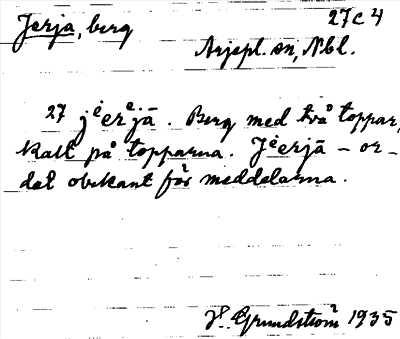 Jerja, berg 27c4
Arjepl. sn, Nbl.
27 jᵉerᵉjā. Berg med två toppar,
kalt på topparna. Jᵉerjā – or-
det obekant för meddelarna.
Hd. Grundström 1935